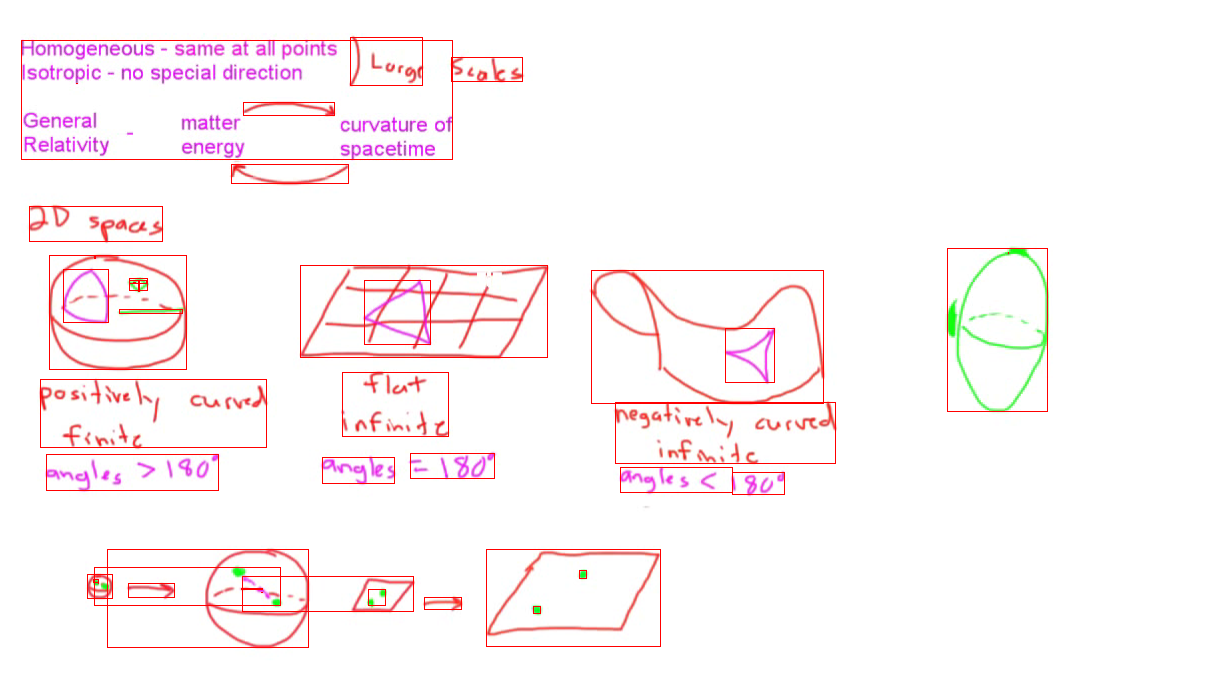 Homogeneous - same at all points
Isotropic - no special direction
) Large Scales
General Relativity - matter energy curvature of spacetime
2D spaces
positively curved
finite
angles > 180°
flat
infinite
angles = 180°
negatively curved
infinite
angles < 180°